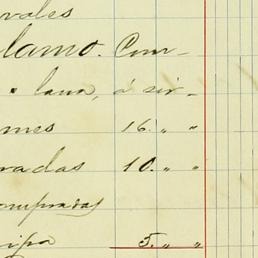 vales
lamo. Com-
lana, á sir-
mes 16. „ „
radas 10. „ „
compradas
ripa 5. „ „